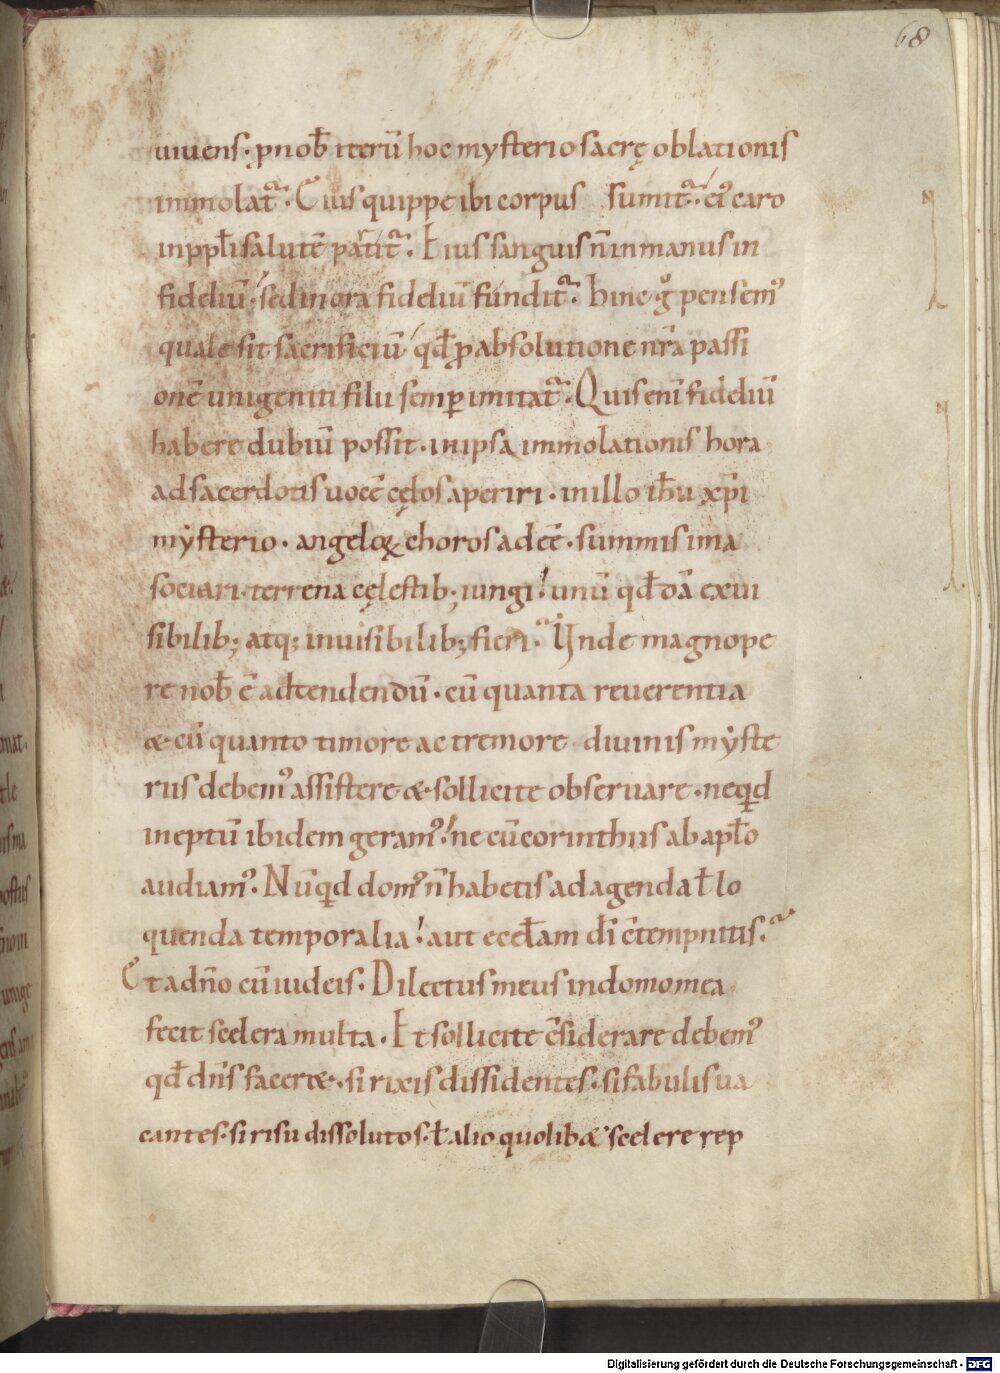 68
uiuens· ꝓ nob̄ iterū hoc mysterio sacrę oblationis
immolat᷑· Eius quippe ibi corpus sumit᷑· ei᷒ caro
in ppl̄i salutē patit᷑· Eius sanguis n̄ in manus in
fideliū· sed in ora fideliū fundit᷑· Hinc g̊ pensem᷒
quale sit sacrificiū· qđ ꝓ absolutione nr̄a passi
onē unigeniti filii semꝑ imitat᷑· Quis enī fideliū
habere dubiū possit· in ipsa immolationis hora
ad sacerdotis uocē cęlos aperiri· in illo ih̄u xp̄i
mẏsterio· angeloꝝ choros adeē· summis ima
sociari· terrena cęlestib; iungi· unū qđdā ex ui
sibilib; atq; inuisibilib; fieri· Unde magnope
re nob̄ ē adtendendū· cū quanta reuerentia
& cū quanto timore ac tremore diuinis mẏste
riis debem᷒ assistere & sollicite obseruare· neqd
ineptū ibidem geram᷒· ne cū corinthiis ab apl̄o
audiam᷒· Nūqd dom᷒ n̄ habetis ad agenda ł lo
quenda temporalia· aut eccl̄am dī c̄tempnitis·
Et a dn̄o cū iudeis· Dilectus meus in domo mea
fecit scelera multa· Et sollicite c̄siderare debem᷒
qđ dn̄s facer&· si rixis dissidentes· si fabulis ua
cantes· si risu dissolutos· ł alio quolib& scelere rep
Digitalisierung gefördert durch die Deutsche Forschungsgemeinschaft - DFG